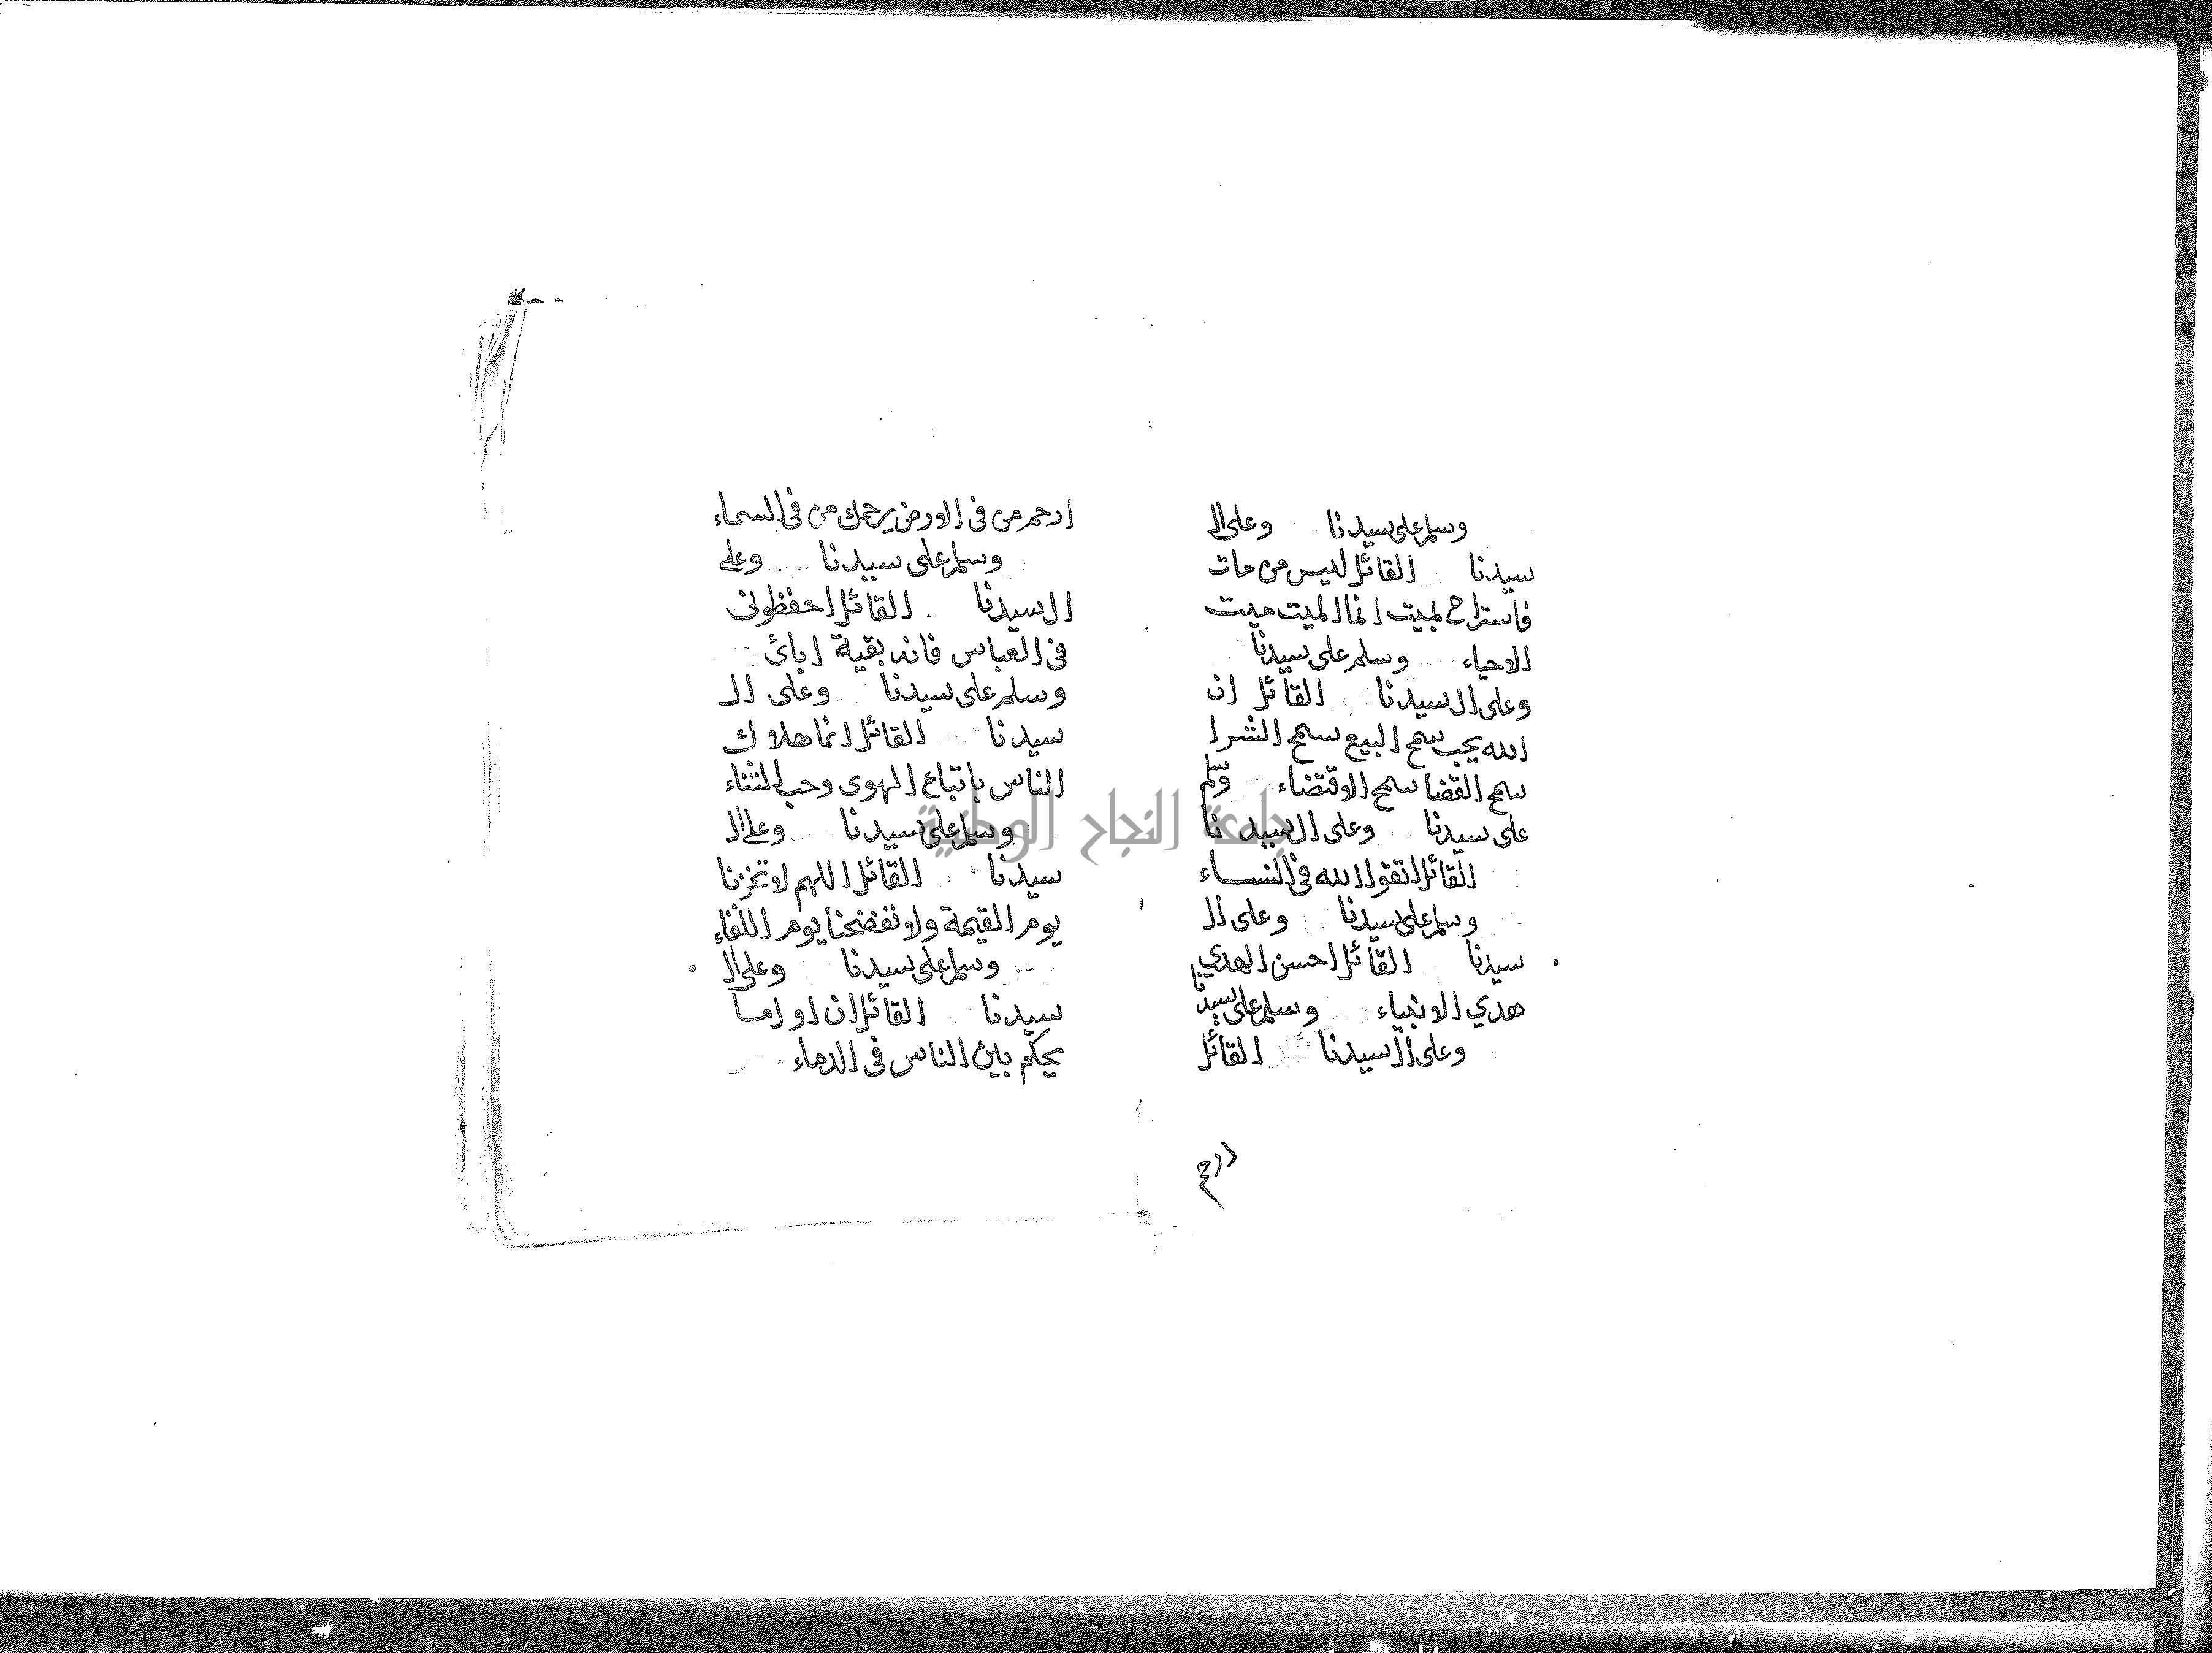 وسلم على سيدنا وعلى ال
سيدنا القائل ليس من مات
فاستراح بميت انما الميت ميت
الاحياء وسلم على سيدنا
وعلى ال سيدنا القائل ان
الله يحب سمح البيع سمح الشرا
سمح القضا سمح الاقتضاء وسلم
على سيدنا وعلى ال سيدنا
القائل اتقوا الله فى النساء
وسلم على سيدنا وعلى ال
سيدنا القائل احسن الهدي
هدي الانبياء وسلم على سيدنا
وعلى ال سيدنا القائل
ارحم
ارحم من فى الارض يرحمك من فى السماء
وسلم على سيدنا وعلى
ال سيدنا القائل احفظونى
فى العباس فانه بقية ابائ
وسلم على سيدنا وعلى ال
سيدنا القائل انما هلاك
الناس باتباع الهوى وحب الثناء
وسلم على سيدنا وعلى ال
سيدنا القائل اللهم لا تخزنا
يوم القيمة ولا تفضحنا يوم اللقاء
وسلم على سيدنا وعلى ال
سيدنا القائل ان اول ما
يحكم بين الناس فى الدماء
جامعة النجاح الوطنية